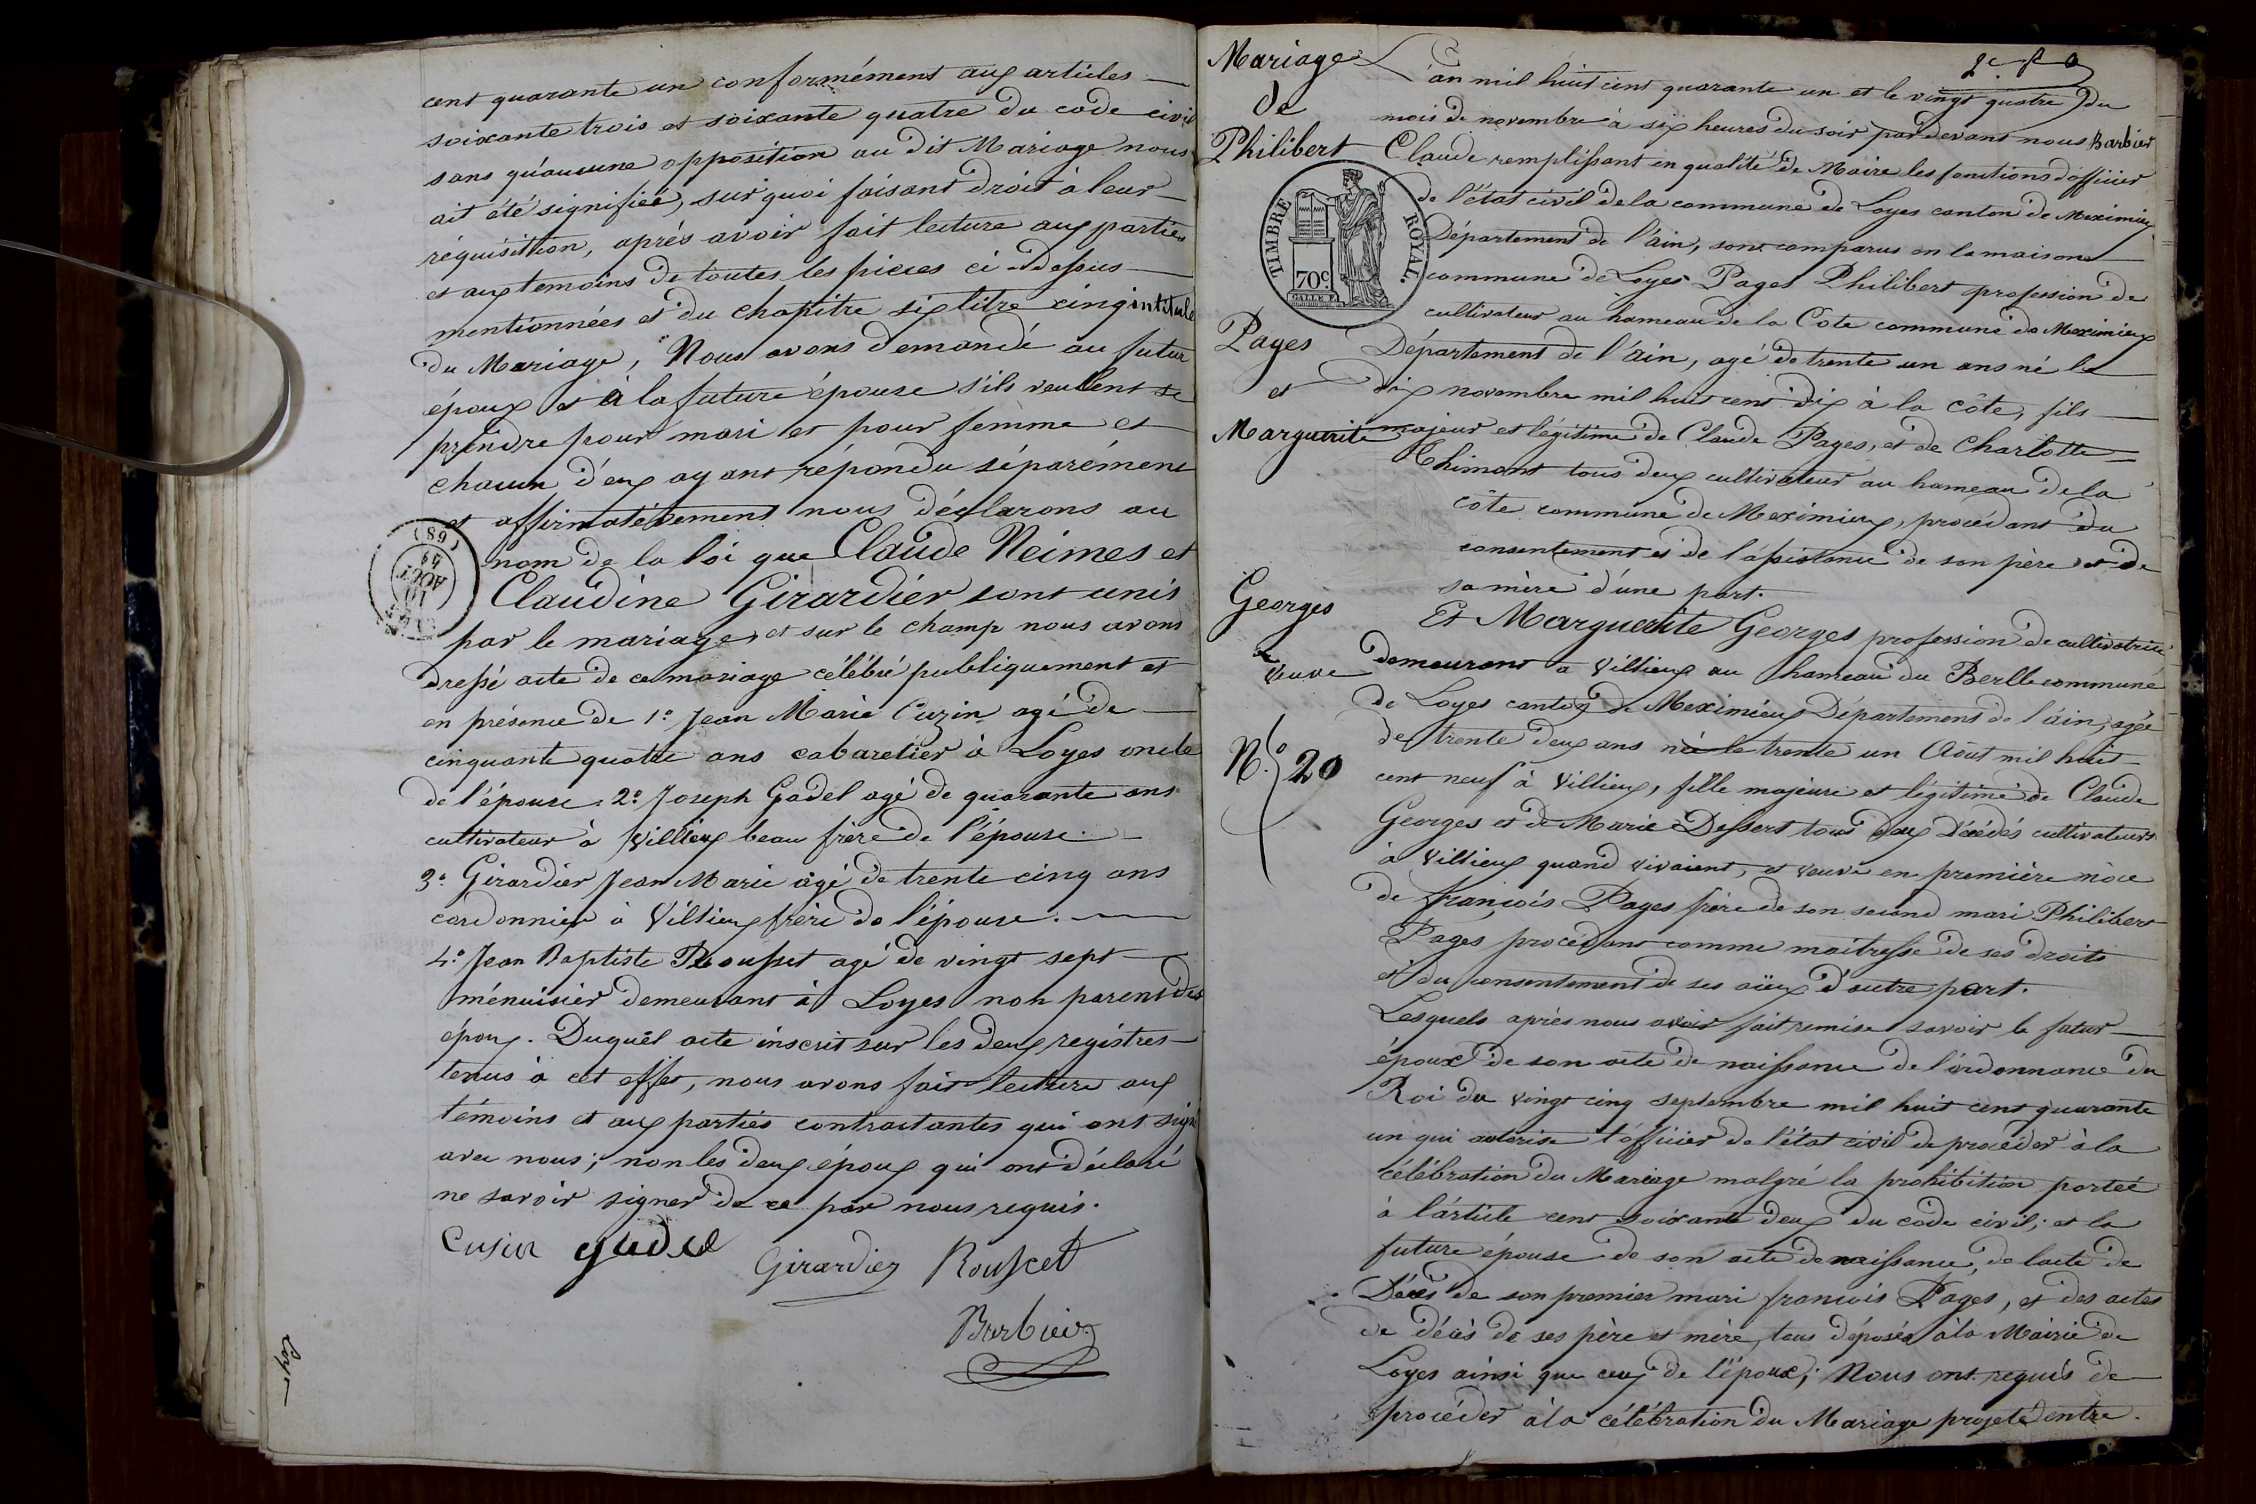 cent quarante un conformément aux articles
soixante trois et soixante quatre du code civil
sans qu'aucune opposition au dit Mariage nous
ait été signifiée, sur quoi faisant droit à leur
réquisition, après avoir fait lecture aux parties
et aux temoins de toutes les pieces ci-dessus
mentionnées et du chapitre six titre cinq intitulé
du Mariage, Nous avons demandé au futur
époux et à la future épouse s'ils veullent se
prendre pour mari et pour femme et
chacun d'eux ayant répondu séparément
et affirmativement nous déclarons au
nom de la loi que Claude Neimes et
Claudine Girardier sont unis
par le mariage, et sur le champ nous avons
dressé acte de ce mariage célébré publiquement et
en présence de 1º Jean Marie Cuzin agé de
cinquante quatre ans cabaretier à Loyes oncle
de l'épouse. 2º Joseph Gadel agé de quarante ans
cultivateur à Villieux beau frère de l'épouse.
3º Girardier Jean Marie agé de trente cinq ans
cordonnier à Villieux frère de l'épouse.
4º Jean Baptiste Rousset agé de vingt sept
ménuisier demeurant à Loyes non parent des
époux. Duquel acte inscrit sur les deux registres
tenus à cet effet, nous avons fait lecture aux
témoins et aux parties contractantes qui ont signé
avec nous; non les deux époux qui ont déclaré
ne savoir signer de ce par nous requis.
Cusin gadel Girardier Rousset
Barbier
(68)
10
AOUT
Loyes
Mariage
de
Philibert
Pages
et
Marguerite
Georges
veuve
Nº 20
TIMBRE ROYAL.
70c
L'an mil huit cent quarante un et le vingt quatre du
mois de novembre à six heures du soir par devant nous Barbier
Claude remplissant en qualité de Maire les fonctions d'officier
de l'état civil de la commune de Loyes canton de Meximieux
Département de l'ain, sont comparus en la maison
commune de Loyes Pages Philibert profession de
cultivateur au hameau de la Côte commune de Meximieux
Département de l'ain, agé de trente un ans né le
dix novembre mil huit cent dix à la côte, fils
majeur et légitime de Claude Pages, et de Charlotte
Thimont tous deux cultivateur au hameau de la
côte commune de Meximieux, procédant du
consentement et de l'assistance de son père et de
sa mère d'une part.
Et Marguerite Georges profession de cultivatrice
demeurant a Villieux au hameau du Berlle commune
de Loyes canton de Meximieux Département de l'ain, agée
de trente deux ans née le trente un Août mil huit
cent neuf à Villieux, fille majeure et légitime de Claude
Georges et de Marie Dessert tous deux décédés cultivateurs
à Villieux quand vivaient, et veuve en première nôce
de françois Pages frère de son second mari Philibert
Pages procédant comme maîtresse de ses droits
et du consentement de ses aïeux d'autre part.
Lesquels après nous avoir fait remise savoir le futur
époux de son acte de naissance de l'ordonnance du
Roi du vingt cinq septembre mil huit cent quarante
un qui autorise l'officier de l'état civil de procéder à la
célébration du Mariage malgré la prohibition portée
à l'article cent soixante deux du code civil; et la
future épouse de son acte de naissance, de l'acte de
Décès de son premier mari françois Pages, et des actes
de décès de ses père et mère, tous déposés à la Mairie de
Loyes ainsi que ceux de l'époux; Nous ont requis de
procéder à la célébration du Mariage projeté entre